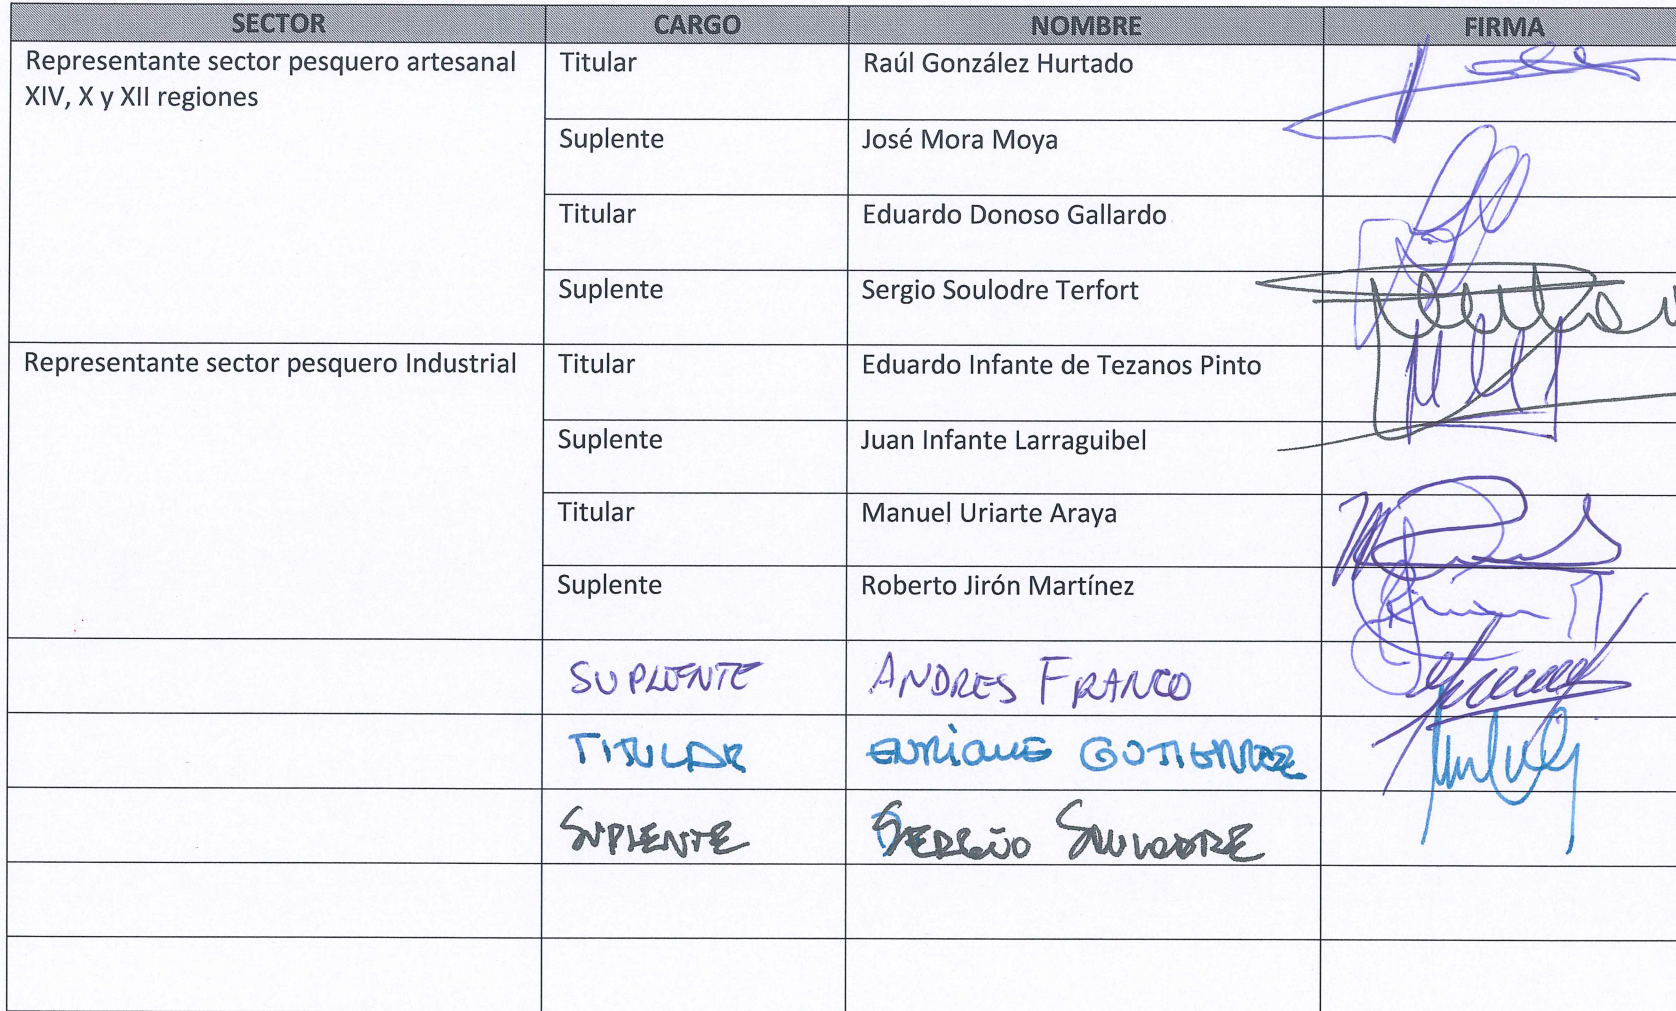 SECTOR CARGO NOMBRE FIRMA
Representante sector pesquero artesanal Titular Raúl González Hurtado
XIV, X y XII regiones
Suplente José Mora Moya
Titular Eduardo Donoso Gallardo
Suplente Sergio Soulodre Terfort
Representante sector pesquero Industrial Titular Eduardo Infante de Tezanos Pinto
Suplente Juan Infante Larraguibel
Titular Manuel Uriarte Araya
Suplente Roberto Jirón Martínez
SUPLENTE ANDRES FRANCO
TITULAR ENRIQUE GUTIERREZ
SUPLENTE SERGIO SOULODRE